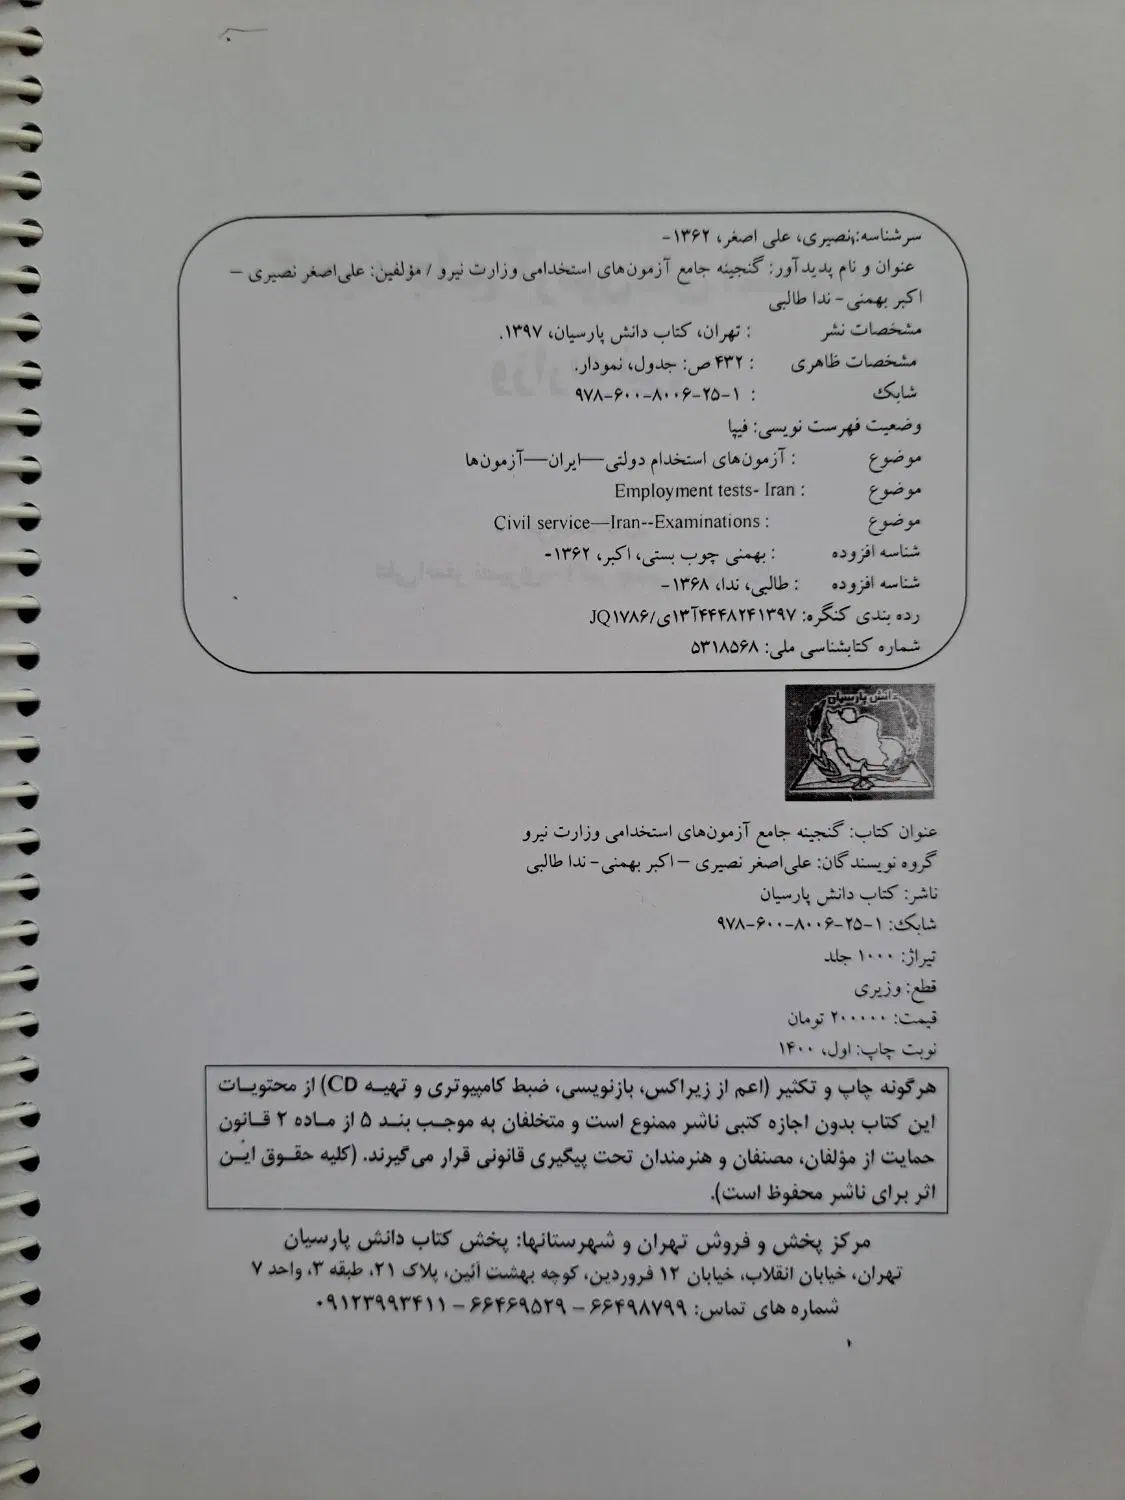 سرشناسه: نصیری، علی اصغر، ۱۳۶۲-
عنوان و نام پدیدآور: گنجینه جامع آزمون‌های استخدامی وزارت نیرو / مؤلفین: علی‌اصغر نصیری –
اکبر بهمنی- ندا طالبی
مشخصات نشر : تهران، کتاب دانش پارسیان، ۱۳۹۷.
مشخصات ظاهری : ۴۳۲ ص: جدول، نمودار.
شابک : ۹۷۸-۶۰۰-۸۰۰۶-۲۵-۱
وضعیت فهرست نویسی: فیپا
موضوع : آزمون‌های استخدام دولتی—ایران—آزمون‌ها
موضوع : Employment tests- Iran
موضوع : Civil service—Iran--Examinations
شناسه افزوده : بهمنی چوب بستی، اکبر، ۱۳۶۲-
شناسه افزوده : طالبی، ندا، ۱۳۶۸-
رده بندی کنگره: ۱۳۹۷ ۴۴۴۸۲۴آ۱۳ی/JQ۱۷۸۶
شماره کتابشناسی ملی: ۵۳۱۸۵۶۸
دانش پارسیان
عنوان کتاب: گنجینه جامع آزمون‌های استخدامی وزارت نیرو
گروه نویسندگان: علی‌اصغر نصیری – اکبر بهمنی- ندا طالبی
ناشر: کتاب دانش پارسیان
شابک: ۹۷۸-۶۰۰-۸۰۰۶-۲۵-۱
تیراژ: ۱۰۰۰ جلد
قطع: وزیری
قیمت: ۲۰۰۰۰۰ تومان
نوبت چاپ: اول، ۱۴۰۰
هرگونه چاپ و تکثیر (اعم از زیراکس، بازنویسی، ضبط کامپیوتری و تهیه CD) از محتویات
این کتاب بدون اجازه کتبی ناشر ممنوع است و متخلفان به موجب بند ۵ از ماده ۲ قانون
حمایت از مؤلفان، مصنفان و هنرمندان تحت پیگیری قانونی قرار می‌گیرند. (کلیه حقوق این
اثر برای ناشر محفوظ است).
مرکز پخش و فروش تهران و شهرستانها: پخش کتاب دانش پارسیان
تهران، خیابان انقلاب، خیابان ۱۲ فروردین، کوچه بهشت آئین، پلاک ۲۱، طبقه ۳، واحد ۷
شماره های تماس: ۶۶۴۹۸۷۹۹ – ۶۶۴۶۹۵۲۹ – ۰۹۱۲۳۹۹۳۴۱۱